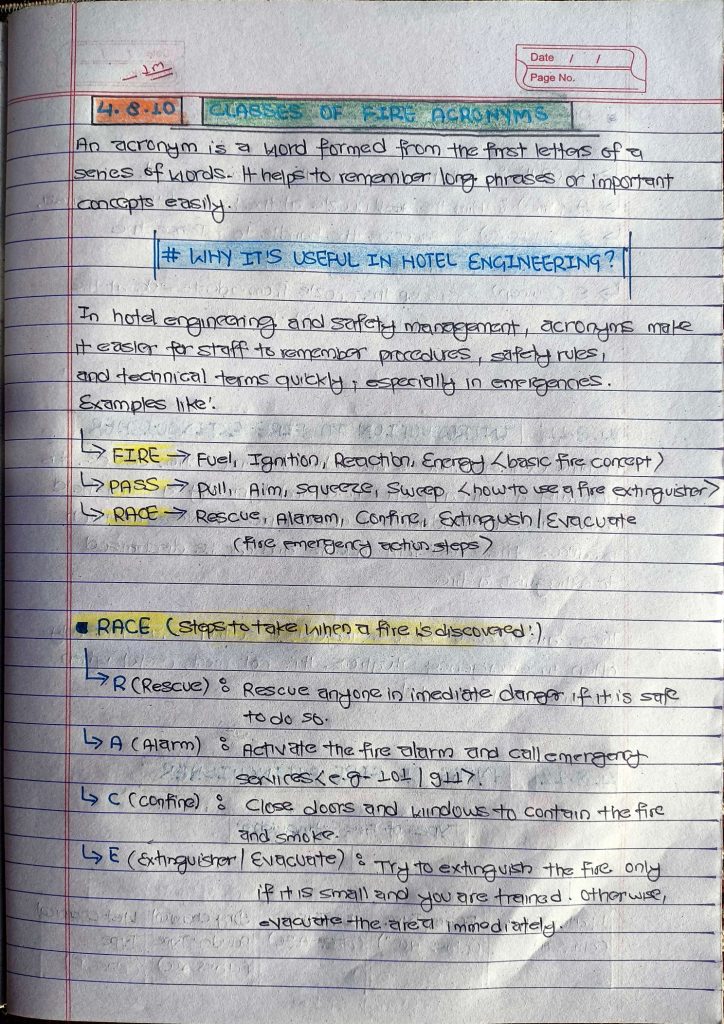 Date / /
Page No.
4.8.10 CLASSES OF FIRE ACRONYMS
An acronym is a word formed from the first letters of a
series of words. It helps to remember long phrases or important
concepts easily.
# WHY IT'S USEFUL IN HOTEL ENGINEERING?
In hotel engineering and safety management, acronyms make
it easier for staff to remember procedures, safety rules,
and technical terms quickly, especially in emergencies.
Examples like:
↳ FIRE → Fuel, Ignition, Reaction, Energy <basic fire concept>
↳ PASS → Pull, Aim, Squeeze, Sweep, <how to use a fire extinguisher>
↳ RACE → Rescue, Alaram, Confine, Extinguish / Evacuate
(fire emergency action steps>
■ RACE (steps to take when a fire is discovered:)
↳ R (Rescue) : Rescue anyone in imediate danger if it is safe
to do so.
↳ A (Alarm) : Activate the fire alarm and call emergency
services <e.g. 101 | 911>.
↳ C (confine) : Close doors and windows to contain the fire
and smoke.
↳ E (Extinguisher / Evacuate) : Try to extinguish the fire only
if it is small and you are trained. Otherwise,
evacuate the area immediately.